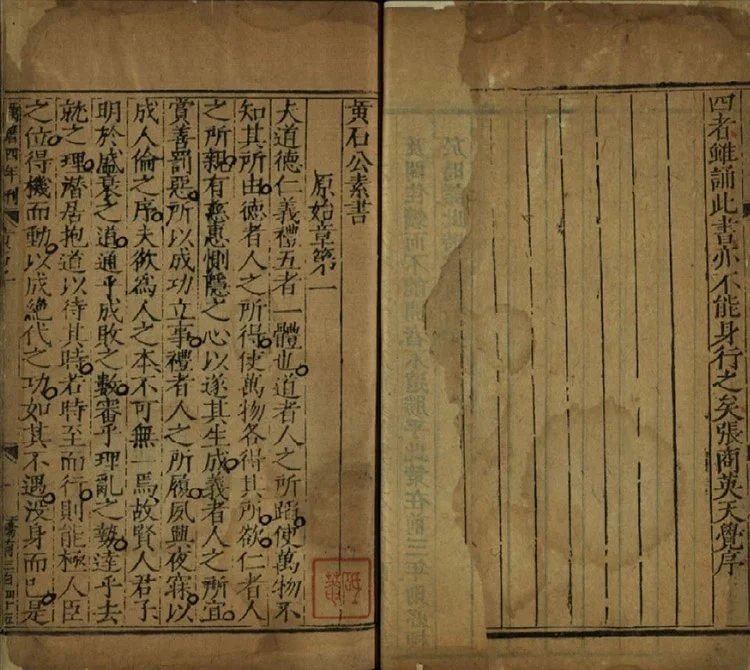 四者雖誦此書亦不能身行之矣張商英天覺序
黄石公素書
原始章第一
夫道德仁義禮五者一體也道者人之所蹈使萬物不
知其所由德者人之所得使萬物各得其所欲仁者人
之所親有慈惠惻隱之心以遂其生成義者人之所宜
賞善罰惡所以成功立事禮者人之所履夙興夜寐以
成人倫之序夫欲爲人之本不可無一焉故賢人君子
明於盛衰之道通乎成敗之數審乎理亂之勢達乎去
就之理潛居抱道以待其時若時至而行則能極人臣
之位得機而動以成絕代之功如其不遇没身而已是
四年刊